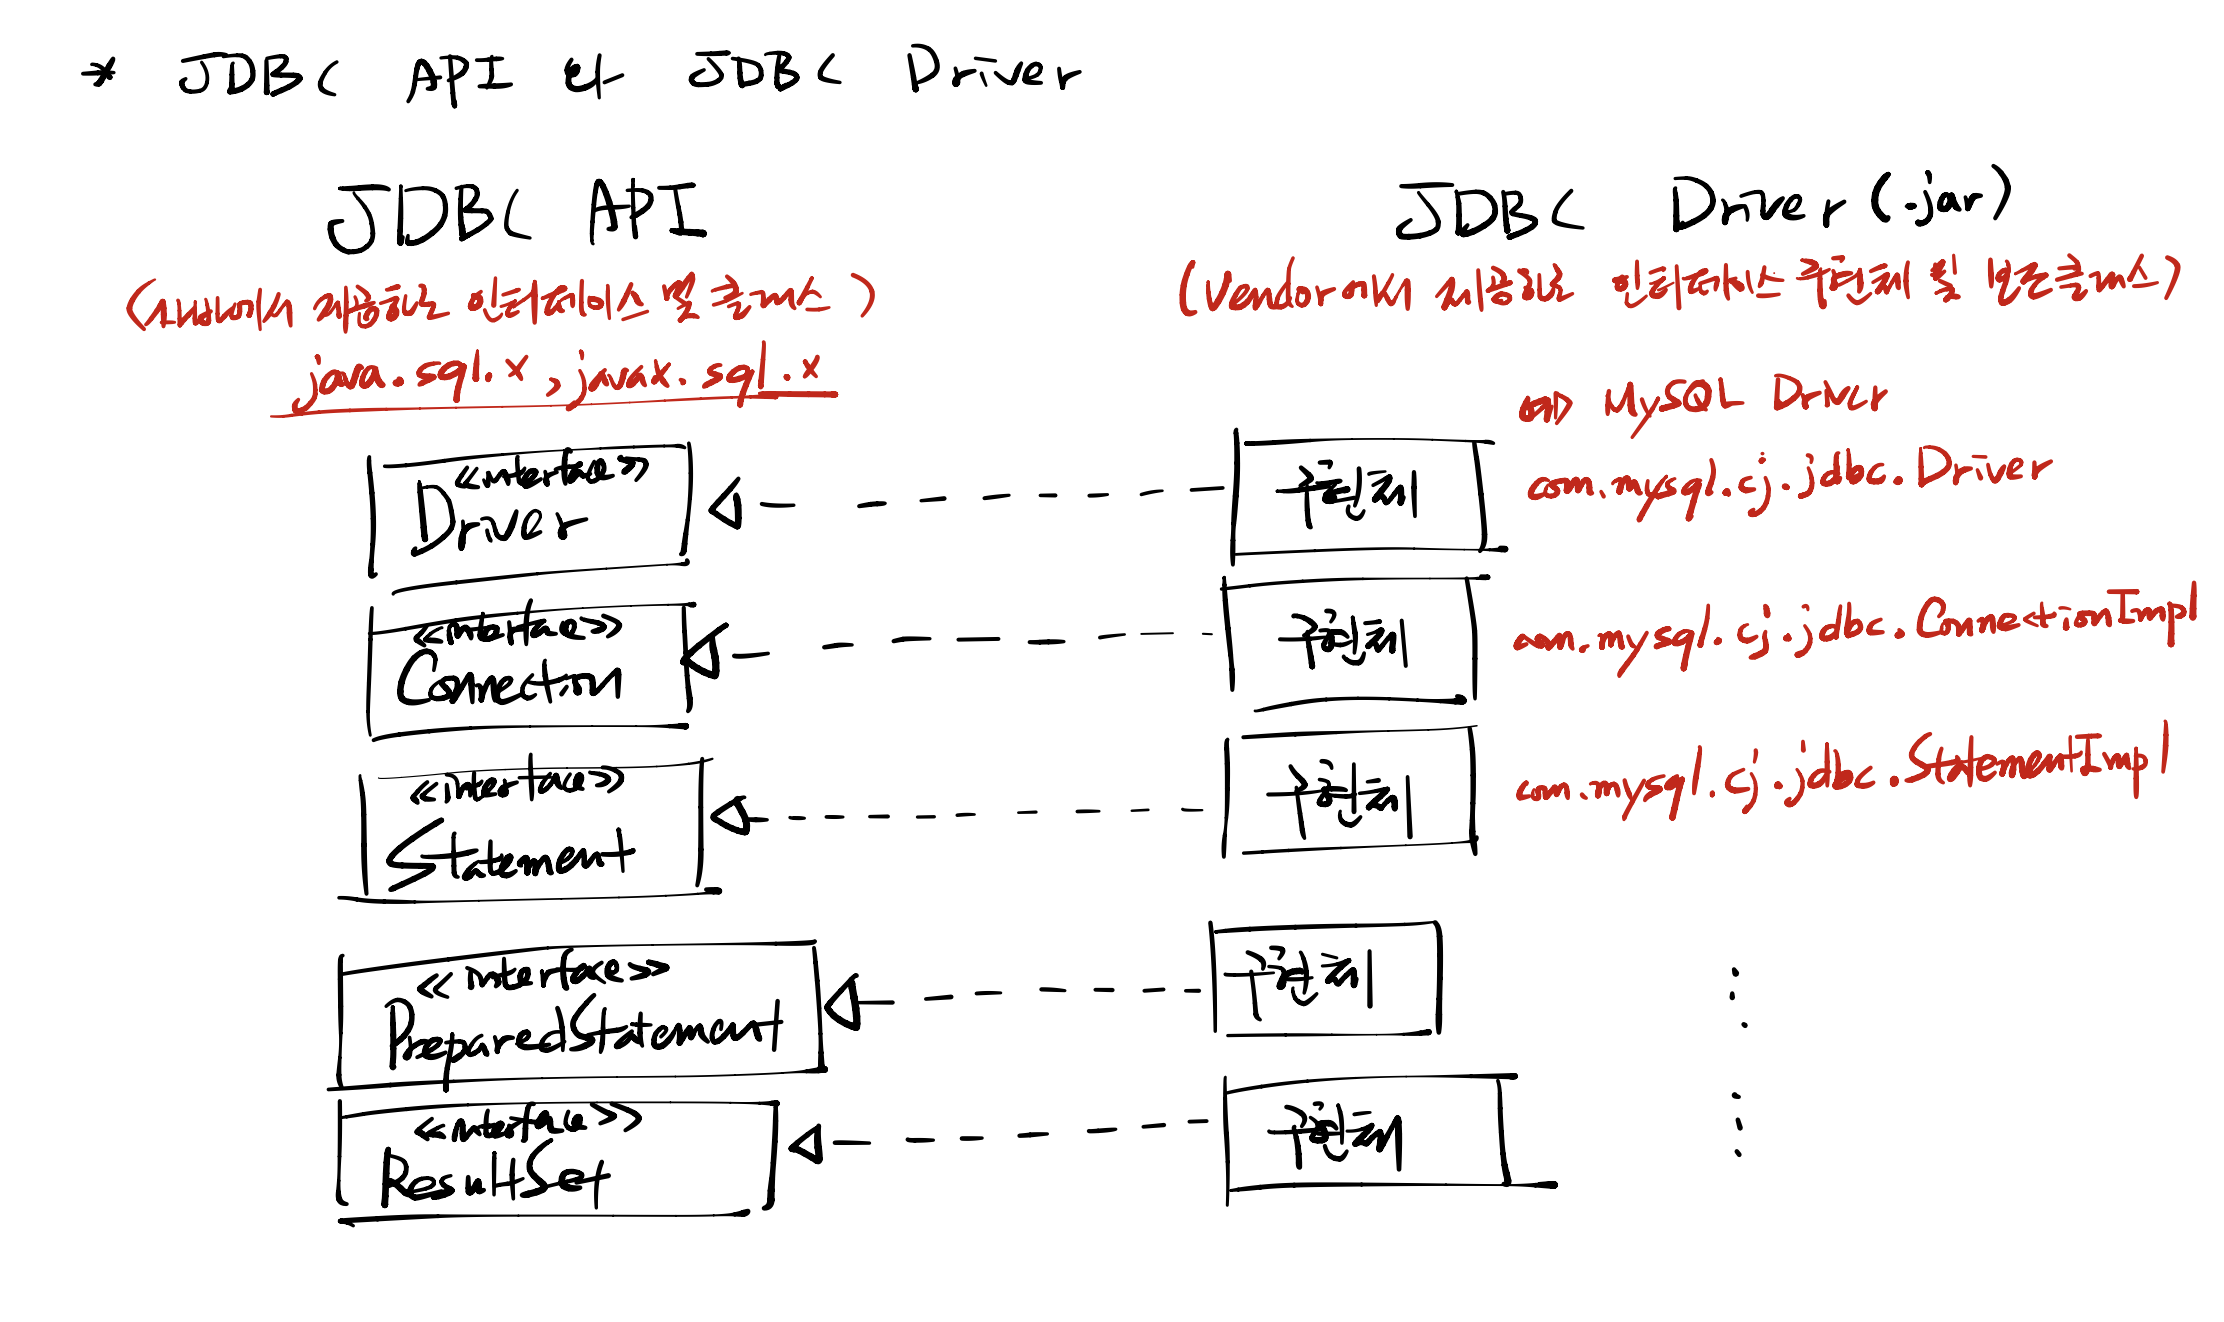 * JDBC API 와 JDBC Driver
JDBC API
(JAVA에서 제공하는 인터페이스 및 클래스)
java.sql.*, javax.sql.*
JDBC Driver (.jar)
(Vendor에서 제공하는 인터페이스 구현체 및 보조클래스)
예) MySQL Driver
<<interface>>
Driver
구현체
com.mysql.cj.jdbc.Driver
<<interface>>
Connection
구현체
com.mysql.cj.jdbc.ConnectionImpl
<<interface>>
Statement
구현체
com.mysql.cj.jdbc.StatementImpl
<<interface>>
PreparedStatement
구현체
<<interface>>
ResultSet
구현체